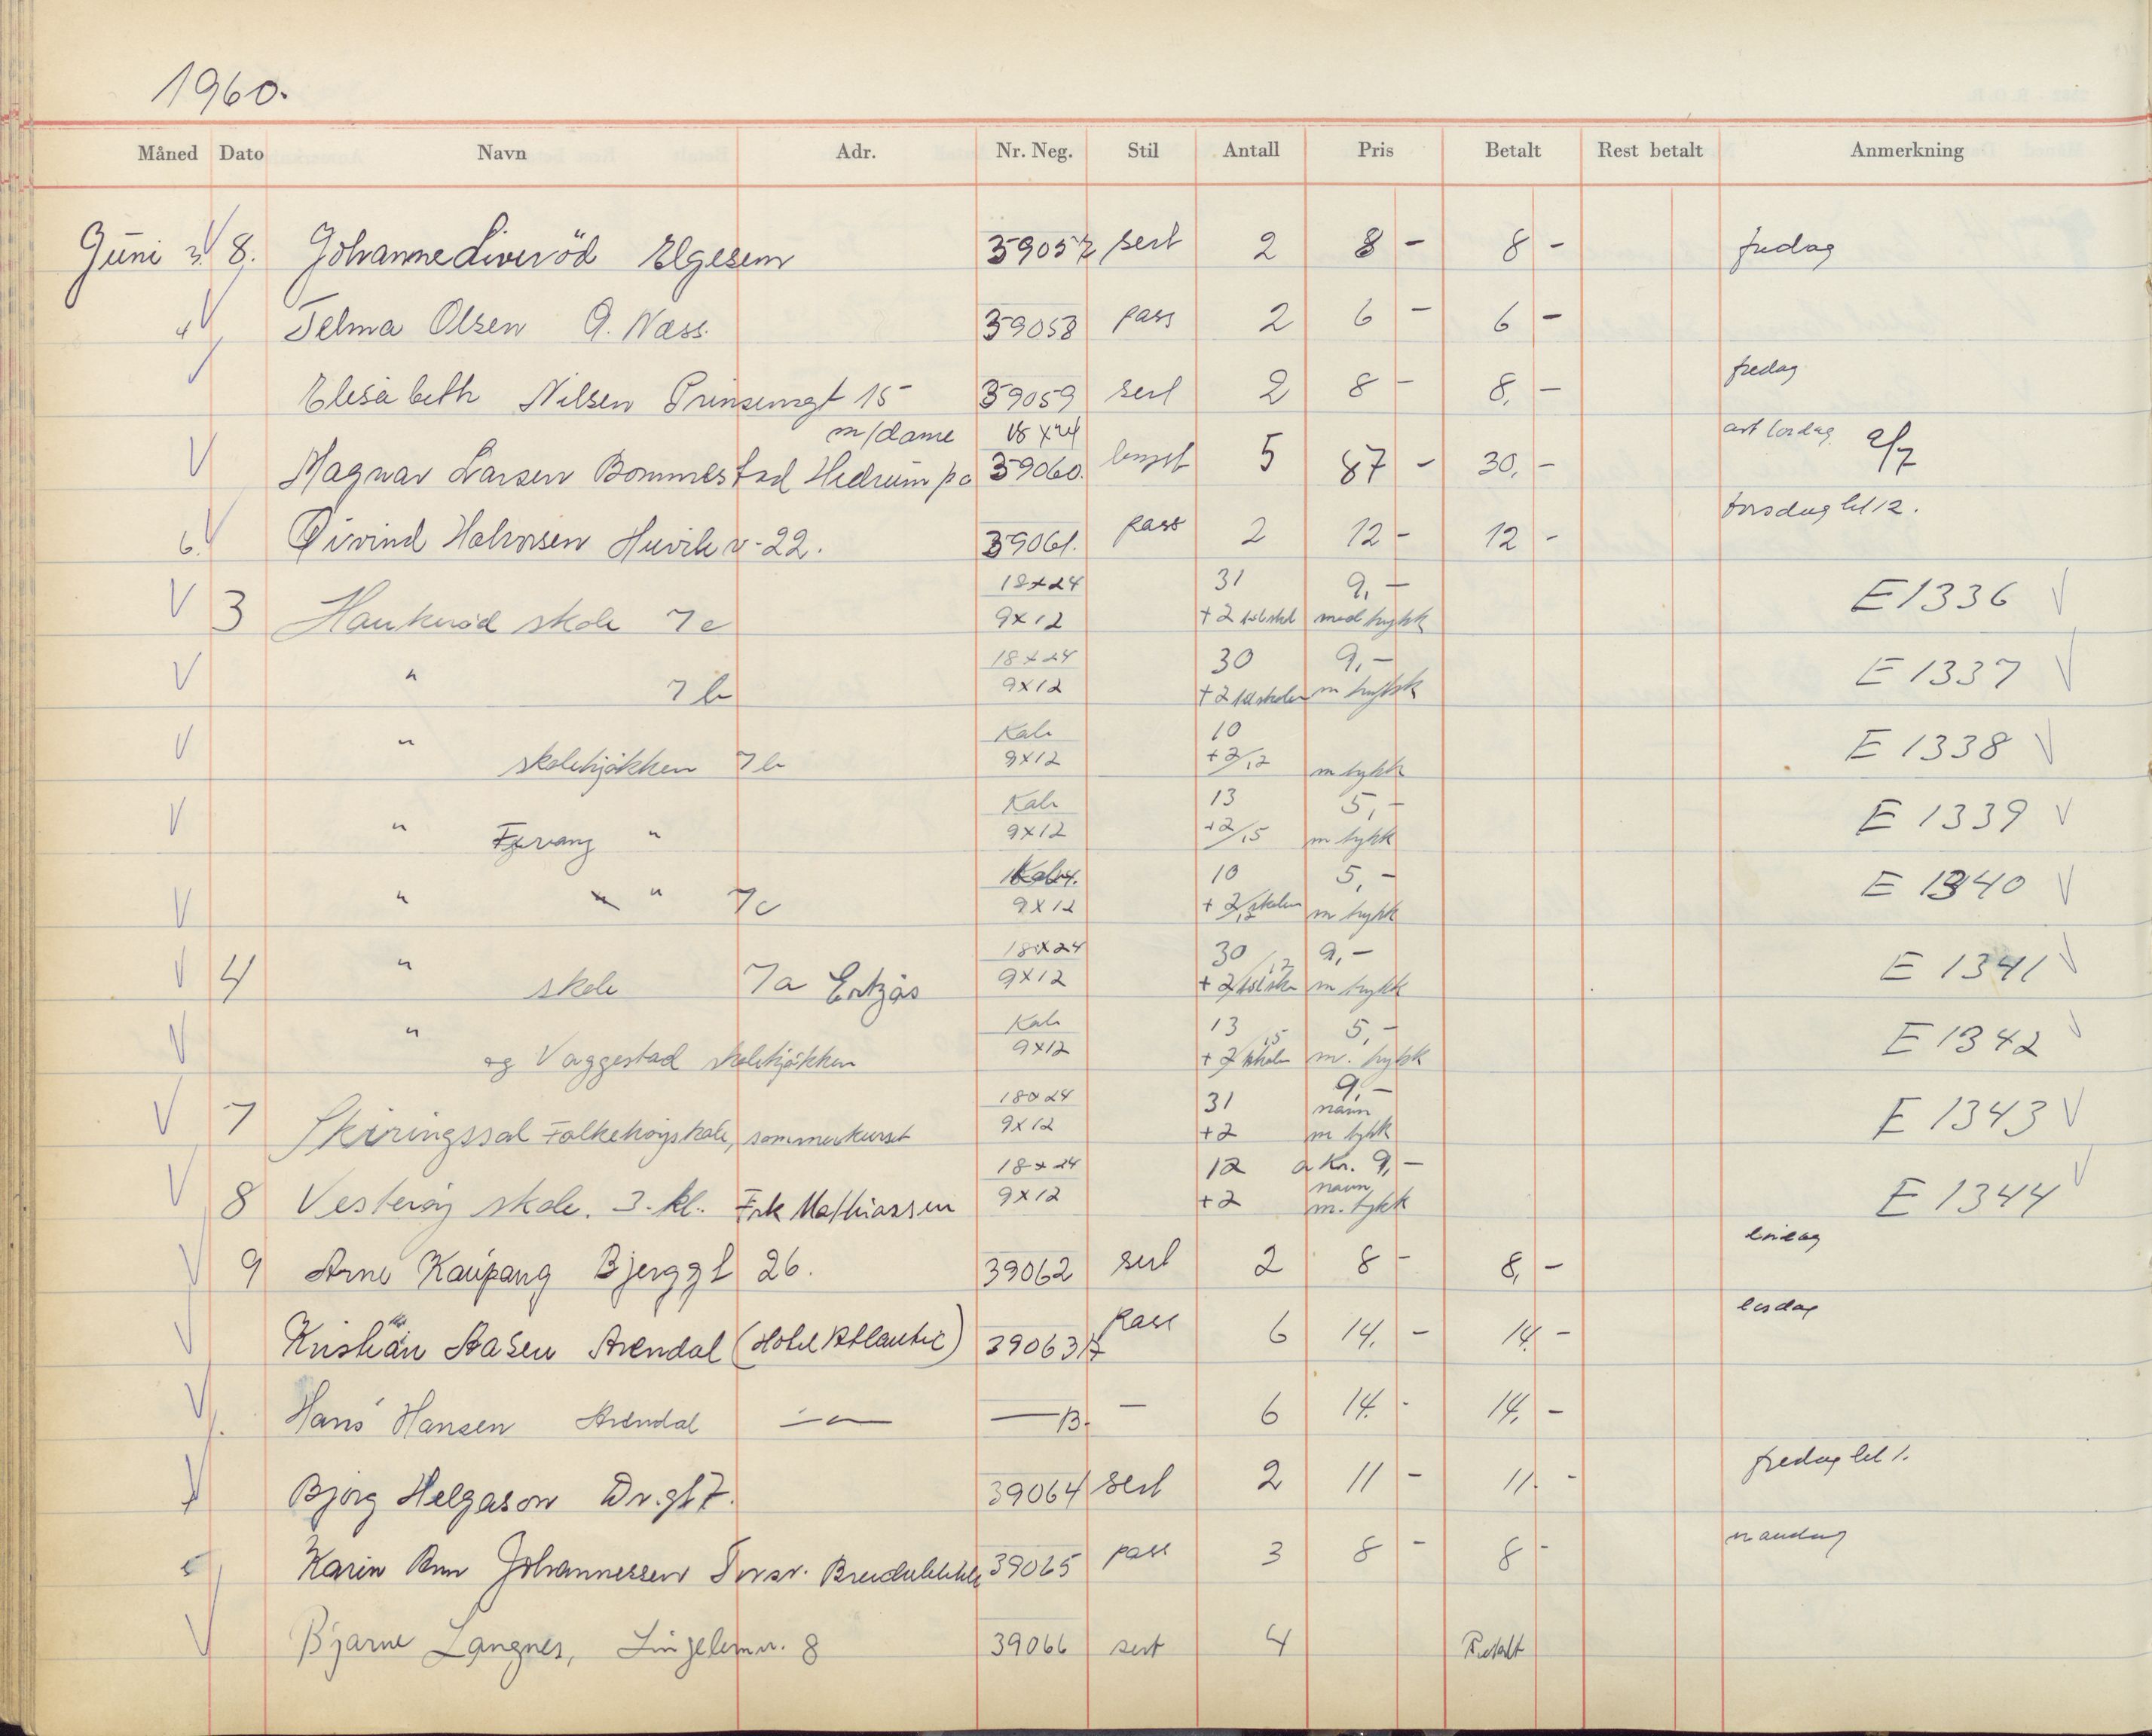 1960.
Måned Dato Navn Adr. Nr. Neg. Stil Antall Pris Betalt Rest betalt Anmerkning
Juni 3. 8. Johanne Liverød Elgesem 39057 sert 2 8 - 8 - fredag
4 Telma Olsen G. Næss. 39058 pass 2 6 - 6 -
Elisabeth Nilsen Prinsensgt 15 39059 sert 2 8 - 8,- fredag
m/dame 18x24
Magnar Larsen Bommestad Hedrum pa 39060. 5 87 - 30,- lørdag 2/7
6. Øivind Halvorsen Huvik v. 22. 39061. pass 2 12 - 12 - torsdag kl 12.
3 Haukerød skole 7c 18x24 31 9,- E1336
9x12 +2 med trykk
" 7b 18x24 30 9,- E1337
9x12 +2 til skolen m trykk
" skolekjøkken 7b Kab 10 E1338
9x12 +2/,2 m trykk
" Fjervang " Kab 13 5,- E1339
9x12 +2/,5 m trykk
" " 7c 10 5,- E1340
9x12 +2 skolen m trykk
4 " skole 7a 18x24 30 9,- E1341
9x12 +2 m trykk
" og Vaggestad skolekjøkken Kab 13 5,- E1342
9x12 +2 m. trykk
7 Skiringssal Folkehøyskole, sommerkurset 18x24 31 9,- E1343
9x12 +2 navn m trykk
8 Vesterøy skole. 3. kl. Frk Mathiassen 18x24 12 a kr. 9,- E1344
9x12 +2 navn m. trykk
9 Arne Kaupang Bjerggt 26. 39062 sert 2 8 - 8,- lørdag
Kristian Aasen Arendal (Hotel Atlantic) 39063A pass 6 14,- 14.-
Hans Hansen Arendal —"— —B. — 6 14.- 14,-
Bjørg Helgason Dr.gt 7. 39064 sert 2 11 - 11.- fredag kl 1.
Karin Ann Johannessen 39065 pass 3 8 - 8 - mandag
Bjarne Langnes, Lingelemv. 8 39066 sert 4 Betalt